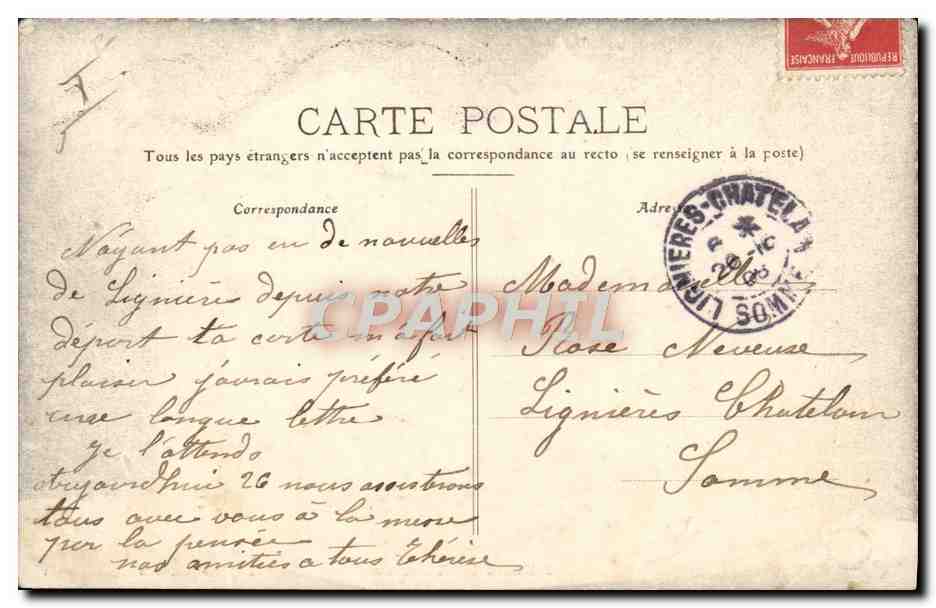 REPUBLIQUE FRANÇAISE
CARTE POSTALE
Tous les pays étrangers n'acceptent pas la correspondance au recto (se renseigner à la poste)
Correspondance
Adresse
LIGNIERES-CHATELAIN
SOMME
N'ayant pas eu de nouvelles
de Lignières depuis notre
départ ta carte m'a fait
plaisir j'aurais préféré
une longue lettre
Je l'attends
aujourd'hui 26 nous assisterons
tous avec vous à la messe
par la pensée
nos amitiés a tous Thérèse
Mademoiselle
Rose Neveuse
Lignières Chatelain
Somme
CPAPHIL